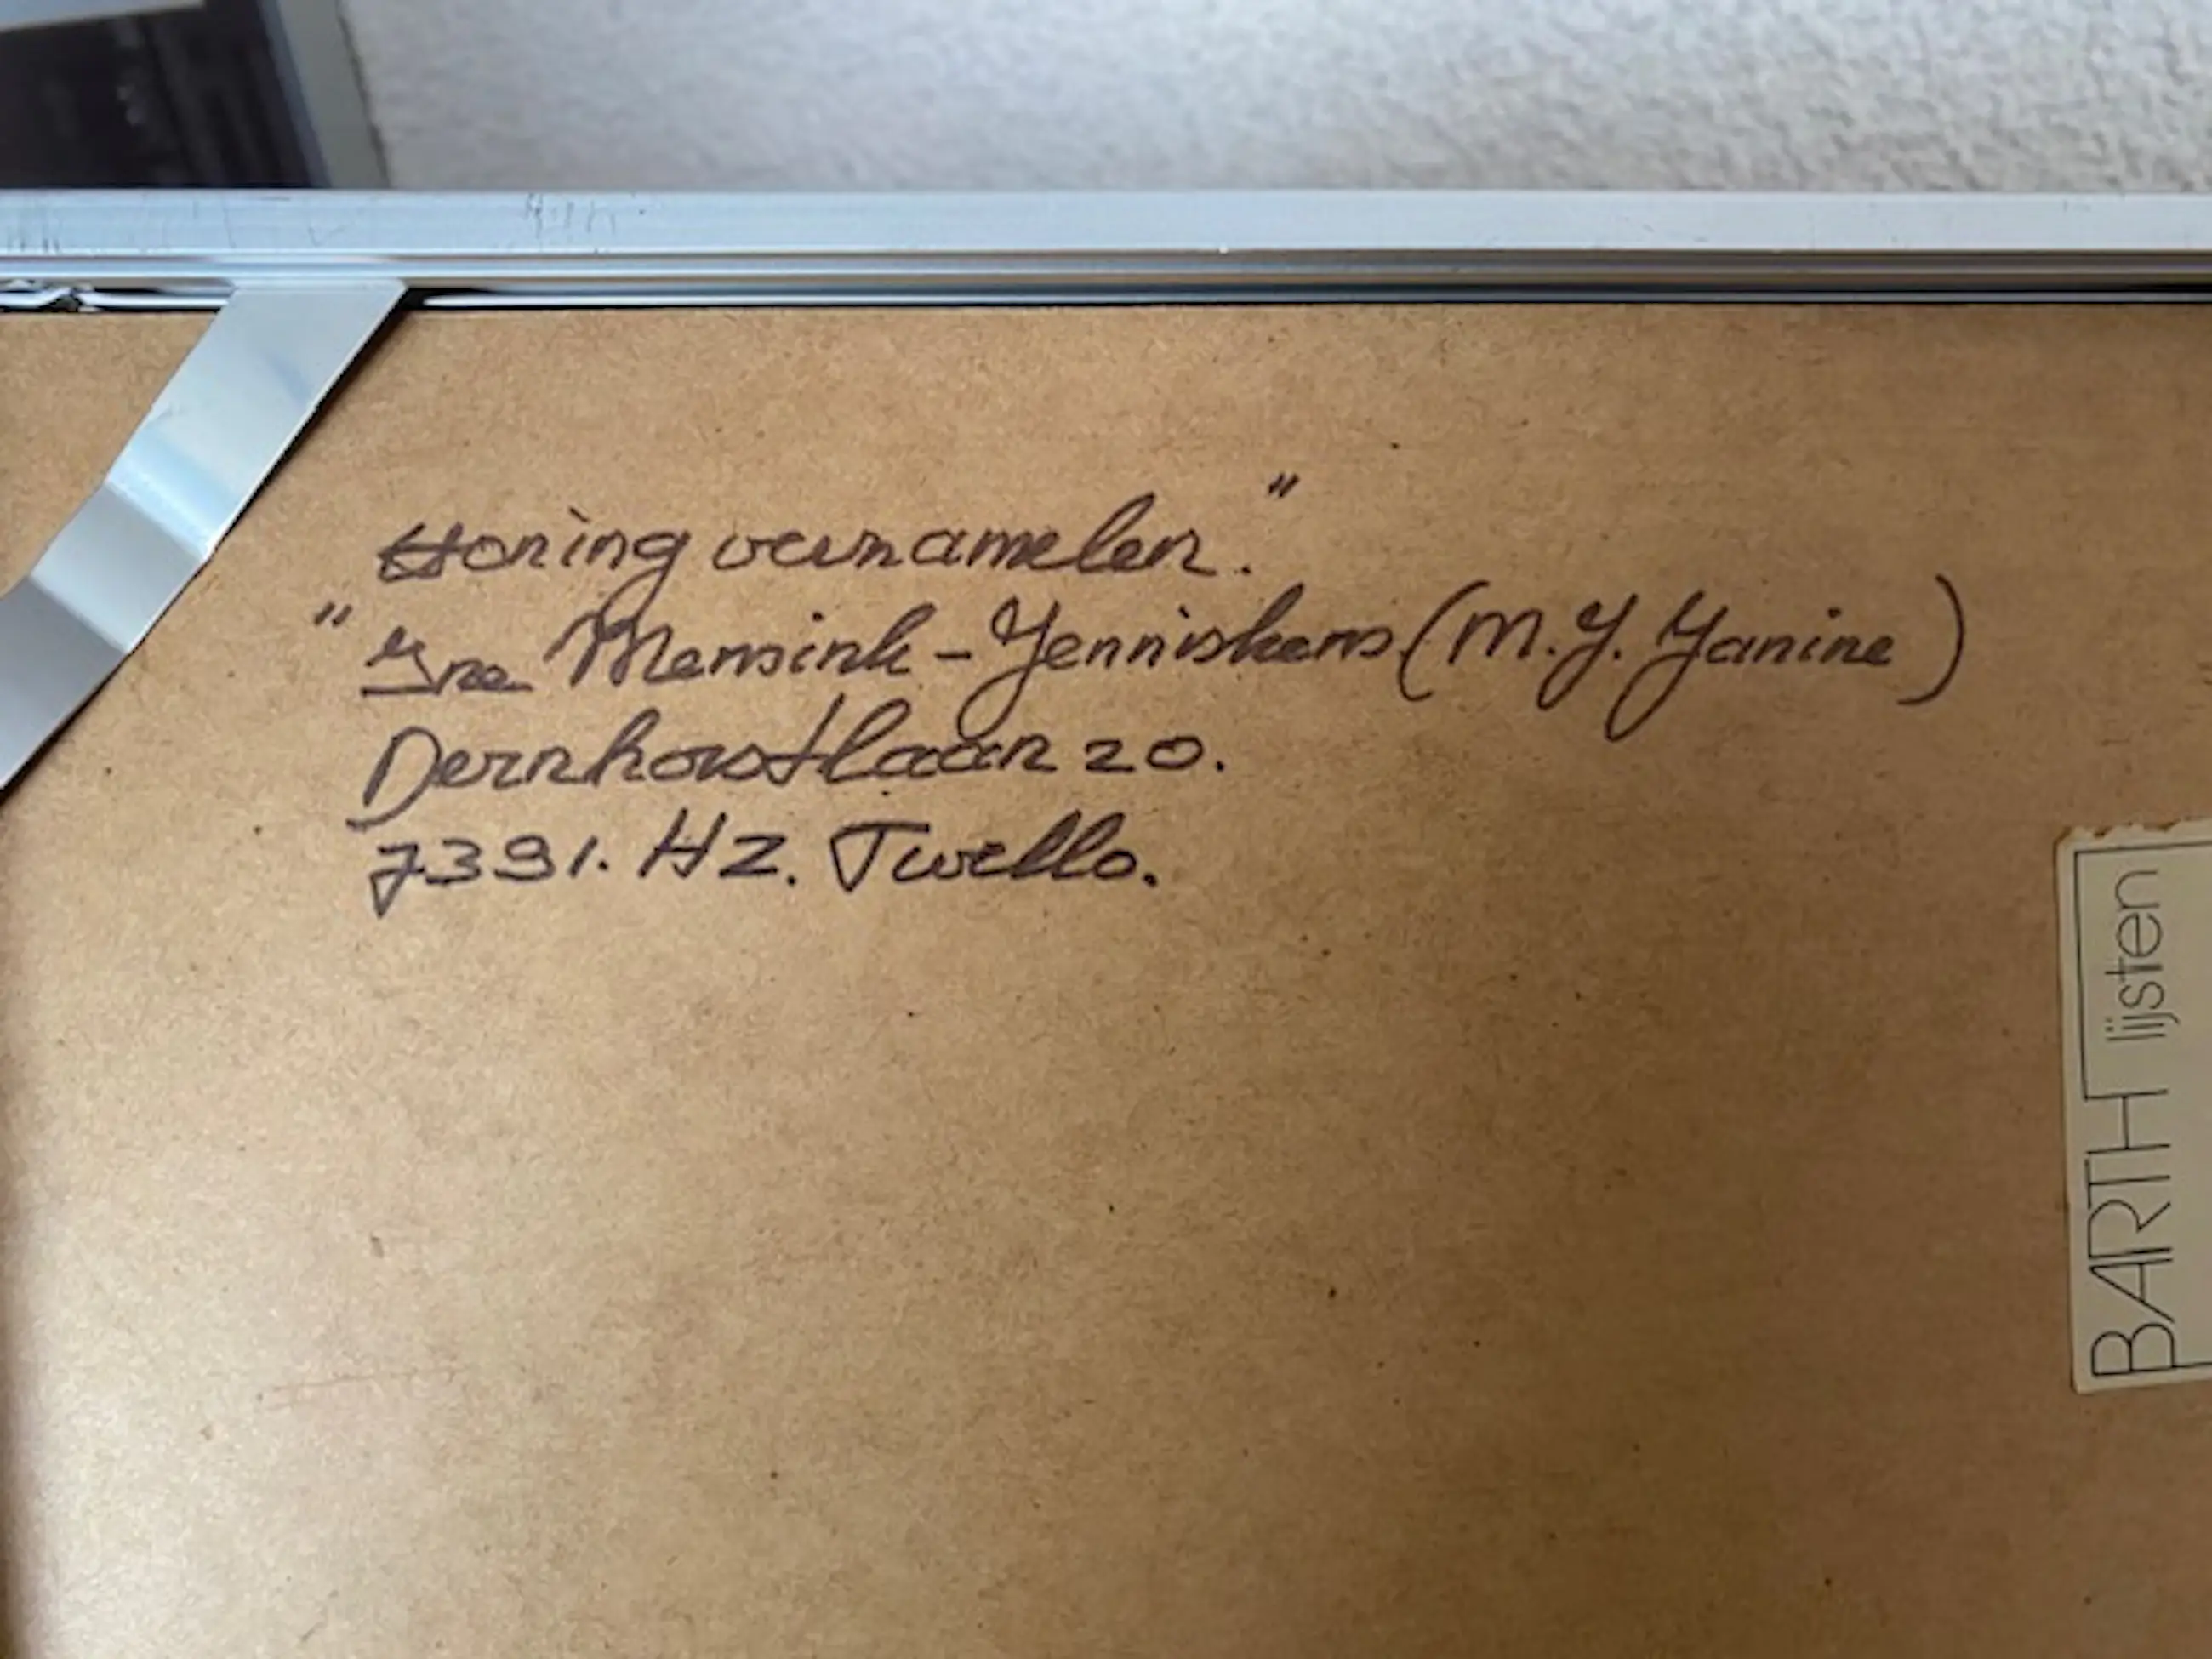 Honing verzamelen."
"Ine Mensink-Jenniskens (M.J. Janine)
Dernhorstlaan 20.
7391. HZ. Twello.
BARTH lijsten